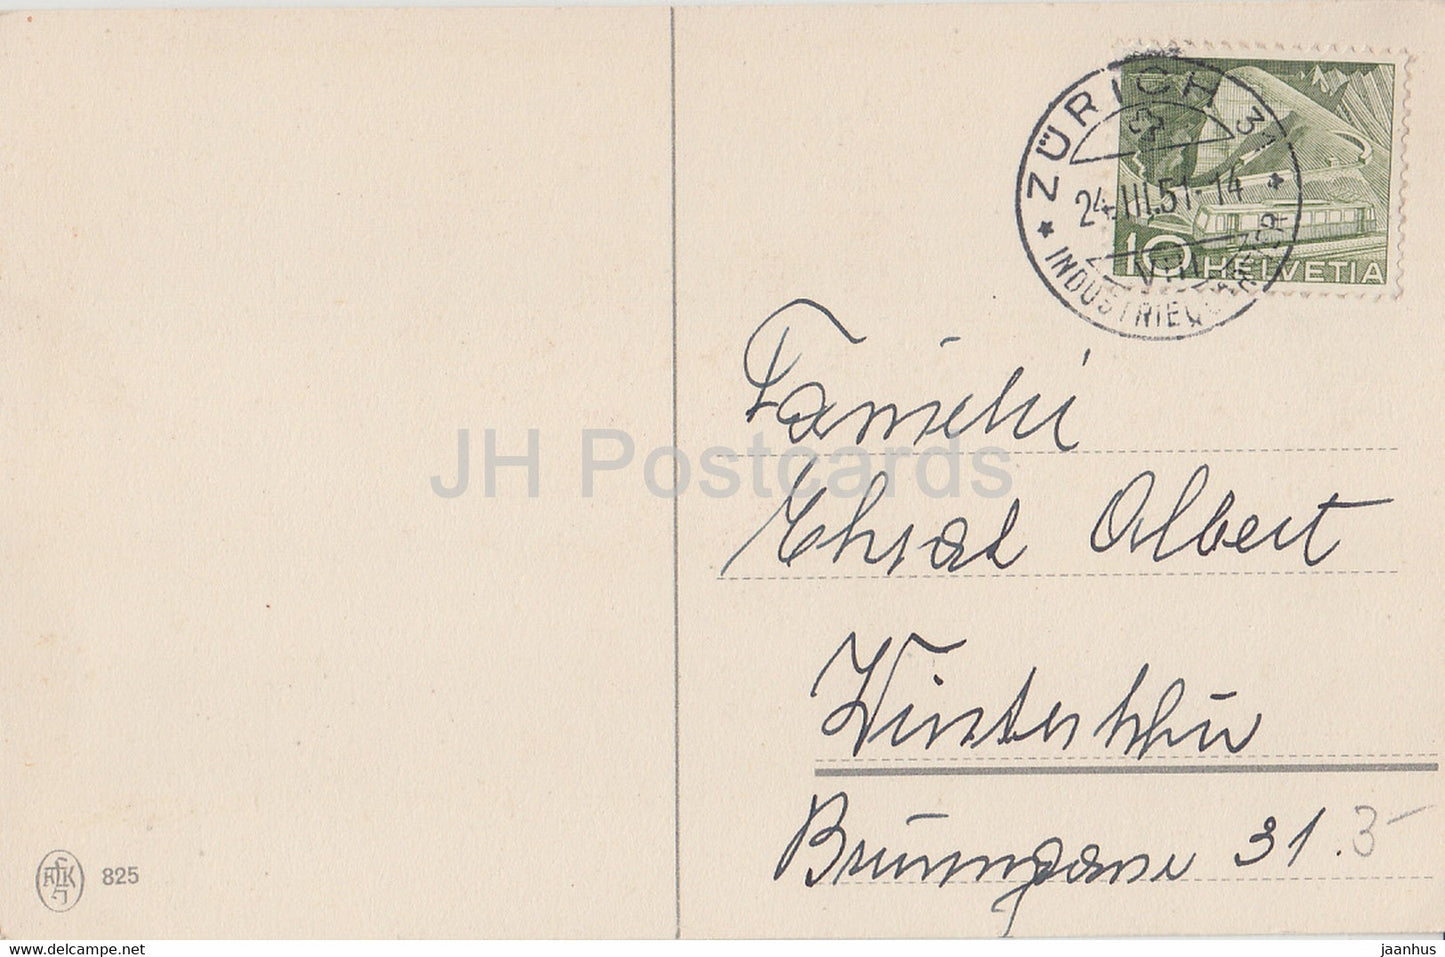 ZÜRICH 31
24.III.51-14
VIII
INDUSTRIEQUARTIER
10 HELVETIA
Familie
Ehrat Albert
Winterthur
Brunngasse 31.
3-
JH Postcards
825
www.delcampe.net
jaanhus